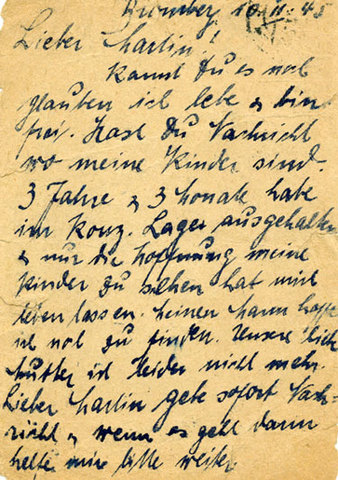 Bromberg 10.II.45
Lieber Martin!
Kannst Du es noch
glauben ich lebe & bin
frei. Hast Du Nachricht
wo meine Kinder sind.
3 Jahre & 3 Monate habe
im Konz. Lager ausgehalten
& nur die Hoffnung meine
Kinder zu sehen hat mich
leben lassen. Meinen Mann hoffe
ich noch zu finden. Unsere liebe
Mutter ist leider nicht mehr.
Lieber Martin gebe sofort Nach-
richt & wenn es geht dann
helfe mir bitte weiter.